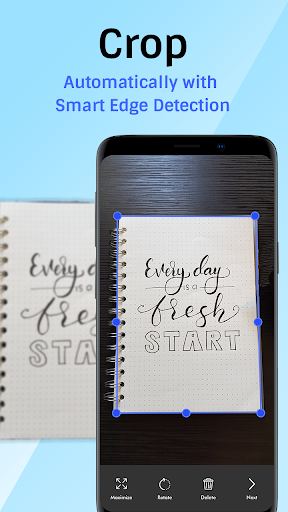 Crop
Automatically with
Smart Edge Detection
Every day
IS A
fresh
START
Every day
IS A
fresh
START
Maximize
Rotate
Delete
Next